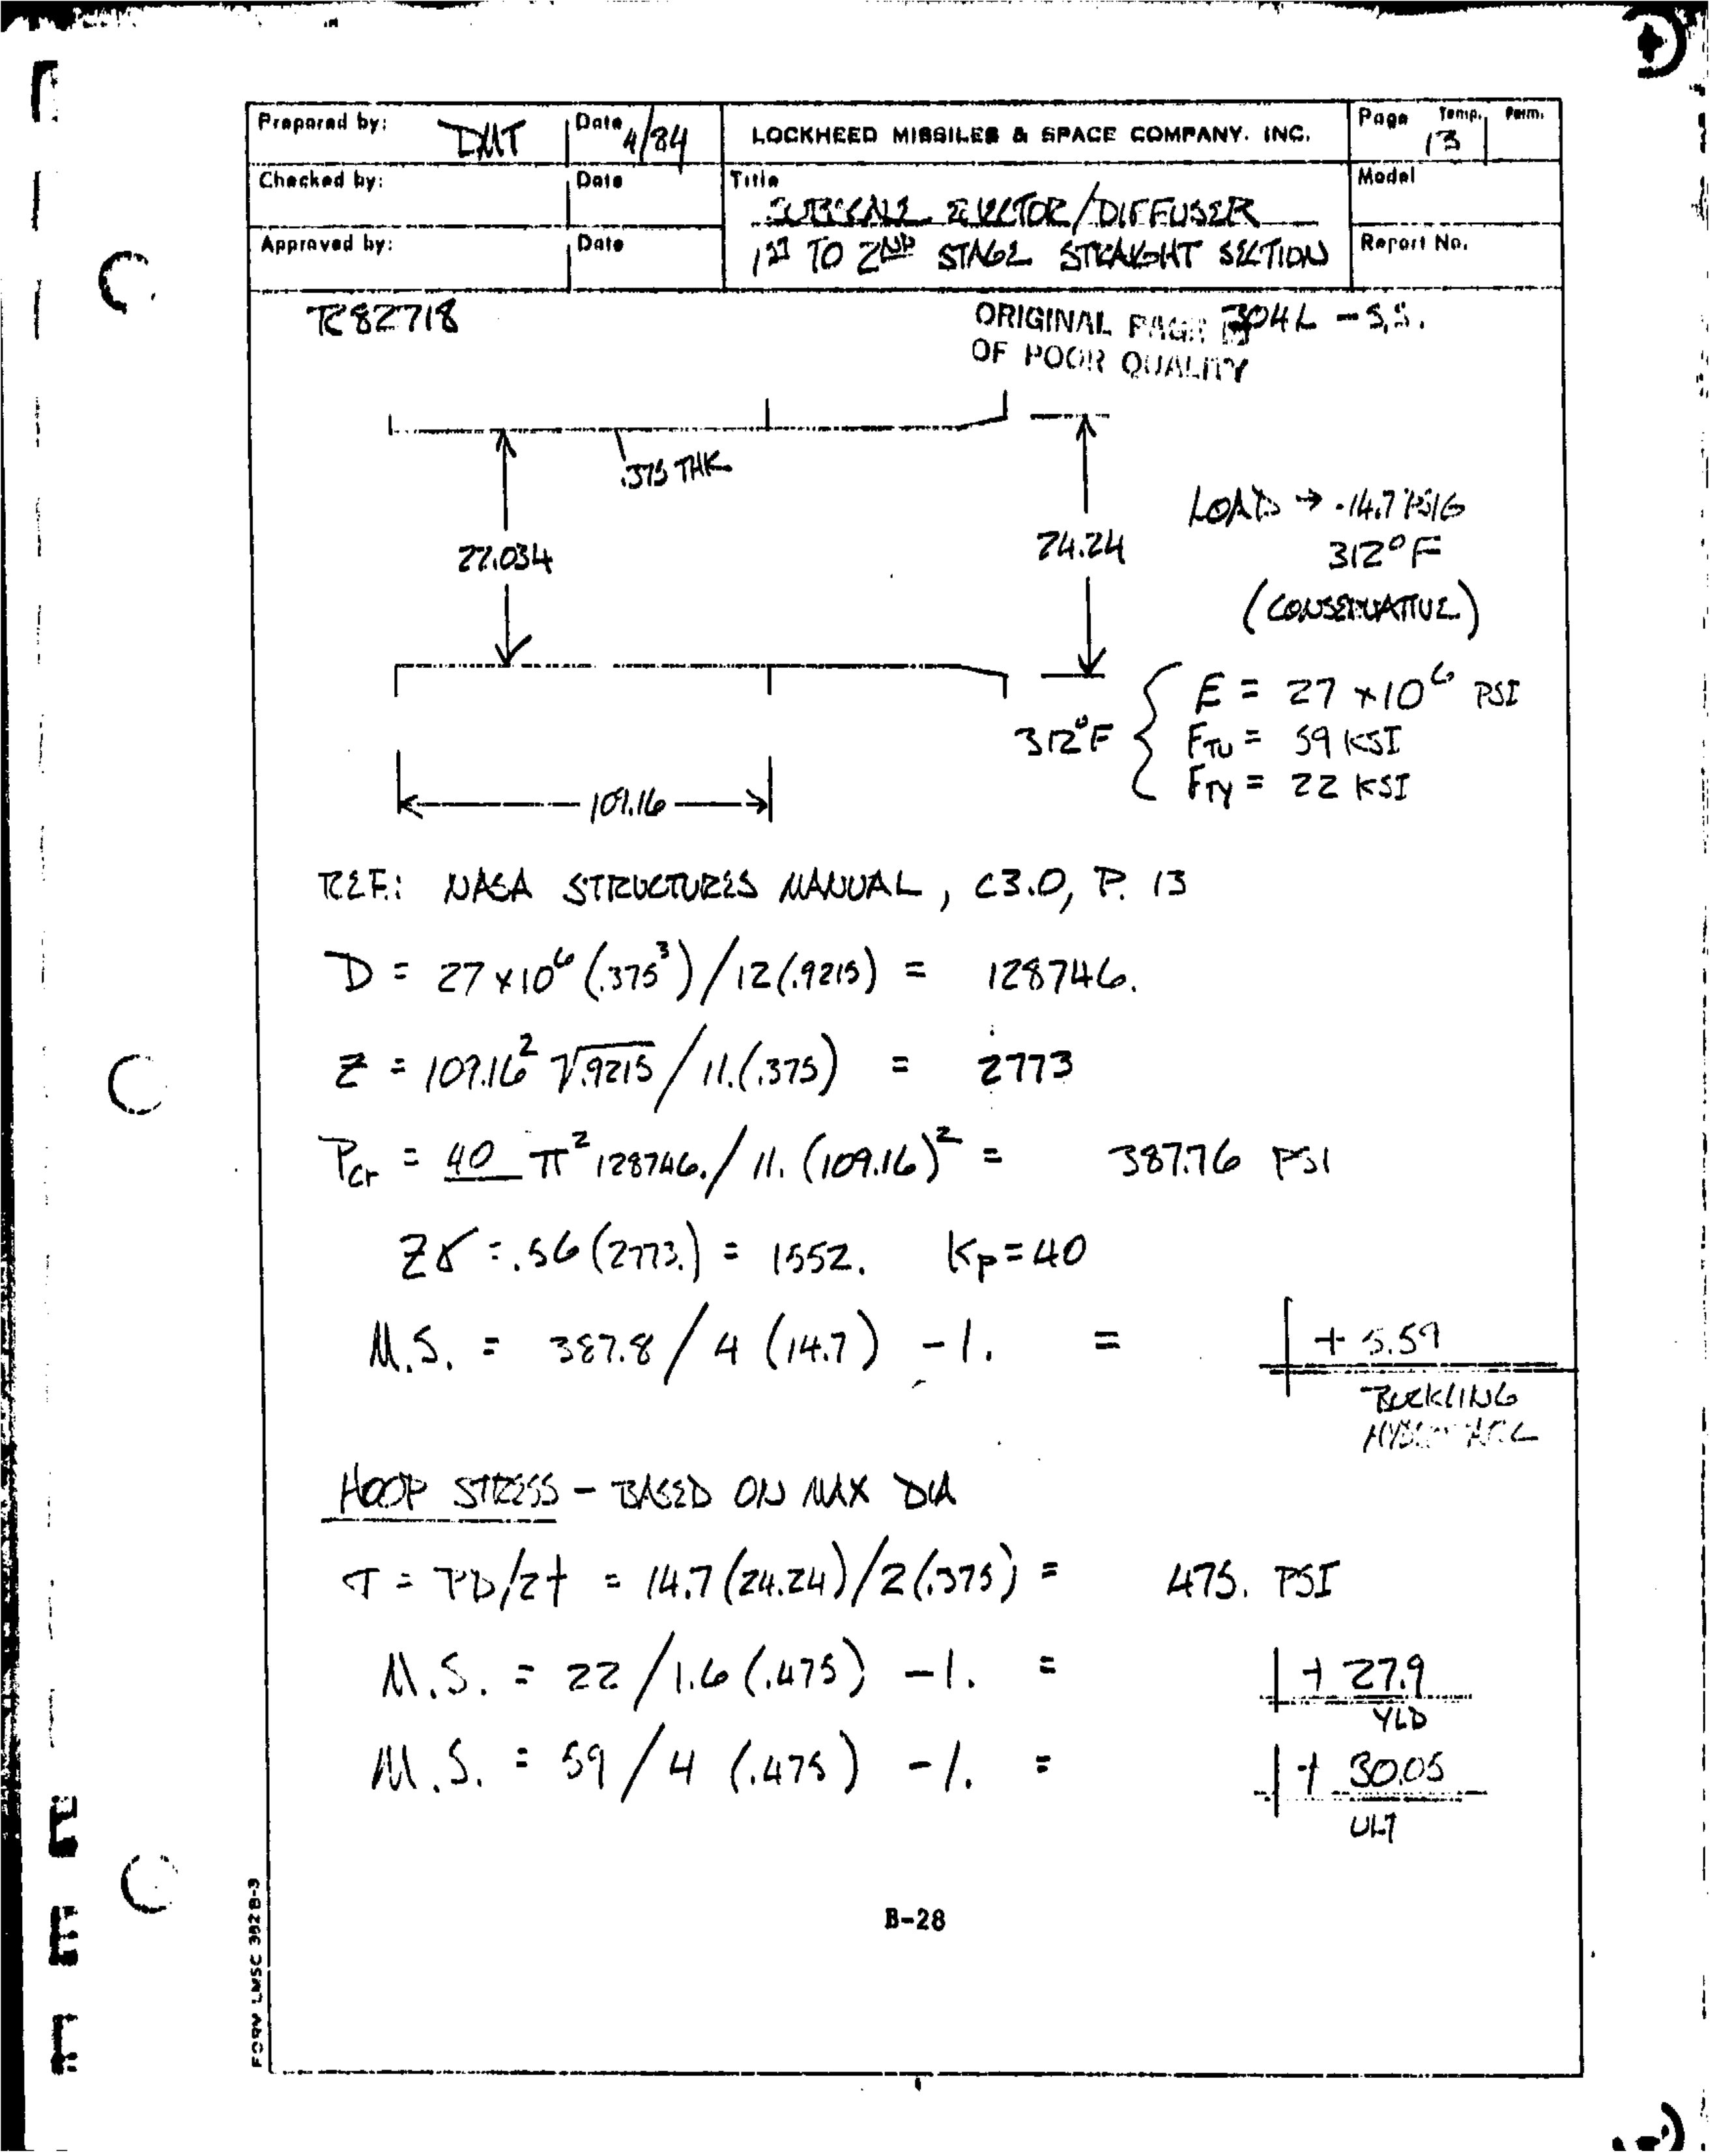 Prepared by: DMT Date 4/84 LOCKHEED MISSILES & SPACE COMPANY. INC. Page Temp. 13 Perm.
Checked by: Date Title SUBSCALE EJECTOR/DIFFUSER Model
Approved by: Date 1ST TO 2ND STAGE STRAIGHT SECTION Report No.
R82718 304L - S.S.
ORIGINAL PAGE IS
OF POOR QUALITY
.375 THK
LOAD → -14.7 PSIG
22.034 24.24 312°F
(CONSERVATIVE)
E = 27 x 10⁶ PSI
312°F { FTU = 59 KSI
FTY = 22 KSI
109.16
REF.: NASA STRUCTURES MANUAL, C3.0, P. 13
D = 27 x 10⁶ (.375³) / 12 (.9215) = 128746.
Z = 109.16² √.9215 / 11. (.375) = 2773
Pcr = 40 π² 128746. / 11. (109.16)² = 387.76 PSI
Zγ = .56 (2773.) = 1552. Kp = 40
M.S. = 387.8 / 4 (14.7) - 1. = + 5.59
BUCKLING
HOOP STRESS - BASED ON MAX DIA
σ = PD/2t = 14.7 (24.24) / 2 (.375) = 475. PSI
M.S. = 22 / 1.6 (.475) - 1. = + 27.9
YLD
M.S. = 59 / 4 (.475) - 1. = + 30.05
ULT
B-28
FORM LMSC 382B-3